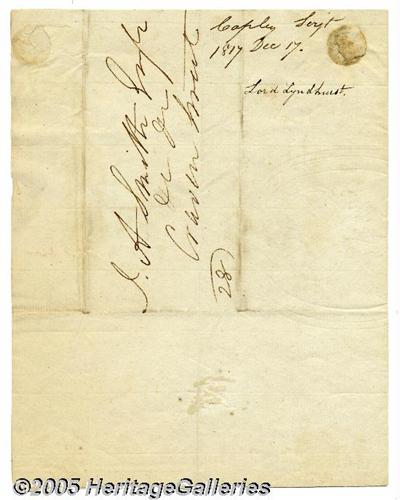 Copley Serjt
1817 Dec 17.
Lord Lyndhurst.
J. A. Smith Esqr
&c &c
Craven Street
28)
©2005 HeritageGalleries